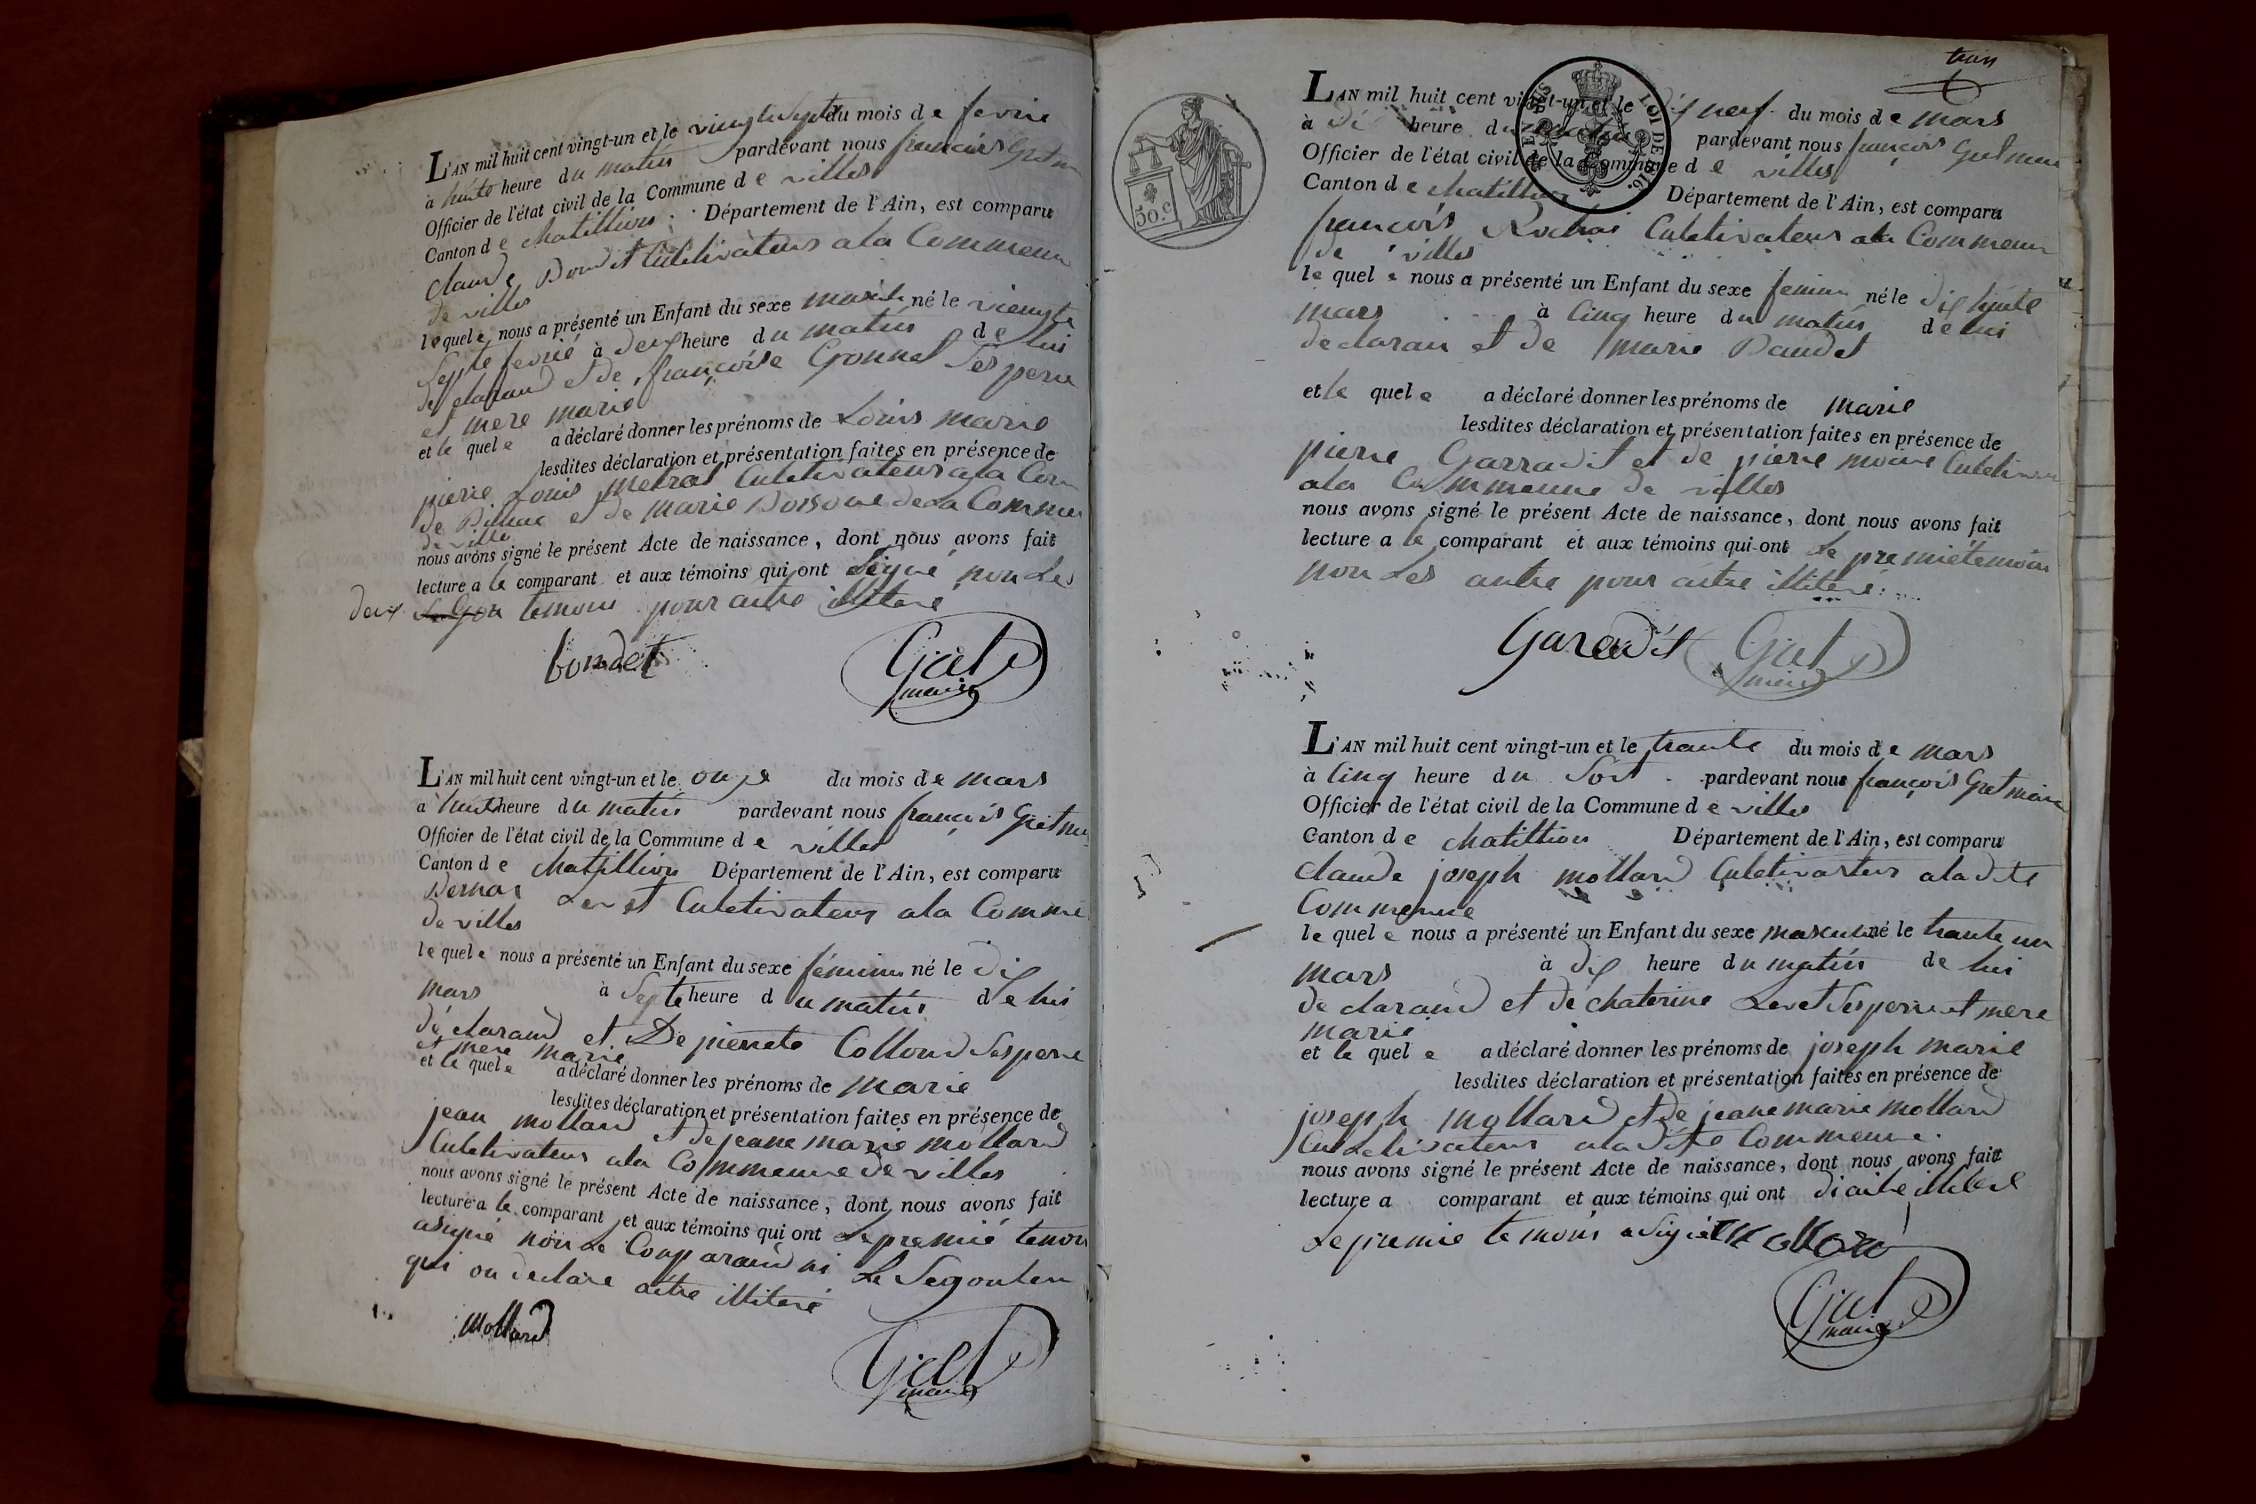 L'AN mil huit cent vingt-un et le vingtesept du mois de fevrie
à huite heure du matin pardevant nous francois Gret
Officier de l'état civil de la Commune de villes
Canton de chatillion Département de l'Ain, est comparu
claude Bondet Culetivateur a la Commeun
de villes
le quele nous a présenté un Enfant du sexe né le viengte
septe fevrié à deux heure du matin de lui
declarand et de françoise Gonnet Ses pere
et mere marie
et le quele a déclaré donner les prénoms de Louis marie
lesdites déclaration et présentation faites en présence de
pierre Louis metral Culetivateur a la Com
de et de marie de La Commeu
de ville
nous avons signé le présent Acte de naissance, dont nous avons fait
lecture a le comparant et aux témoins qui ont Signé non Les
deux temoin pour aitre illiteré
bondet
Gret
maire
L'AN mil huit cent vingt-un et le onze du mois de mars
à huit heure du matin pardevant nous francois Gret
Officier de l'état civil de la Commune de villes
Canton de chatillion Département de l'Ain, est comparu
Bernar Levet Culetivateur a la Comme
de villes
le quele nous a présenté un Enfant du sexe féminin né le dix
mars à Septe heure du matin de lui
déclarand et De pierrete Collond Ses pere
et mere marie
et le quele a déclaré donner les prénoms de marie
lesdites déclaration et présentation faites en présence de
jean mollard et de jeane marie mollard
Culetivateur a la Commeune de villes
nous avons signé le présent Acte de naissance, dont nous avons fait
lecture a le comparant et aux témoins qui ont Le premié temoin
a signé non Le Comparand ni Le Segon tem
qui on declare aitre illiteré
mollard
Gret
maire
trois
50 c
LOI DE 1816
L'AN mil huit cent vingt-un et le dix neuf du mois de mars
à dix heure du matin pardevant nous françois Gret maire
Officier de l'état civil de la Commune de villes
Canton de chatillion Département de l'Ain, est comparu
francois Rochai Culetivateur a la Commeun
de villes
le quele nous a présenté un Enfant du sexe feminin né le dix huite
mars à cinq heure du matin de lui
declaran et de marie Baudet
et le quele a déclaré donner les prénoms de marie
lesdites déclaration et présentation faites en présence de
pierre Garradit et de pierre moine Culetivateur
a la Commeune de villes
nous avons signé le présent Acte de naissance, dont nous avons fait
lecture a le comparant et aux témoins qui ont Le premié temoin
non Les autre pour aitre illiteré
Garadit
Gret
maire
L'AN mil huit cent vingt-un et le trante du mois de mars
à cinq heure du Soir pardevant nous françois Gret maire
Officier de l'état civil de la Commune de villes
Canton de chatillion Département de l'Ain, est comparu
claude joseph mollard Culetivateur a la dite
Commeune
le quele nous a présenté un Enfant du sexe masculin né le trante un
mars à dix heure du matin de lui
declarand et de chaterine Levet Ses pere et mere
marié
et le quele a déclaré donner les prénoms de joseph marie
lesdites déclaration et présentation faites en présence de
joseph mollard et de jeane marie mollard
Culetivateur a la dite Commeune.
nous avons signé le présent Acte de naissance, dont nous avons fait
lecture a comparant et aux témoins qui ont di aitre illiteré
Le premié temoin a Signé mollard
Gret
maire